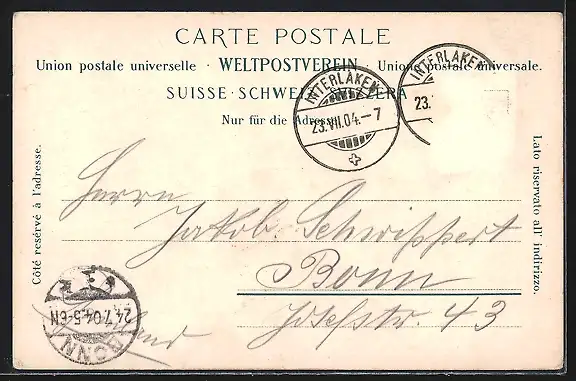 CARTE POSTALE
Union postale universelle · WELTPOSTVEREIN · Unione postale universale.
SUISSE · SCHWEIZ · SVIZZERA
Nur für die Adresse.
INTERLAKEN
23.VII.04.–7
INTERLAKEN
23.
Côté réservé à l'adresse.
Lato riservato all' indirizzo.
Herrn
Jakob Schwippert
Bonn
Josefstr. 43
BONN
24.7.04.5-6N